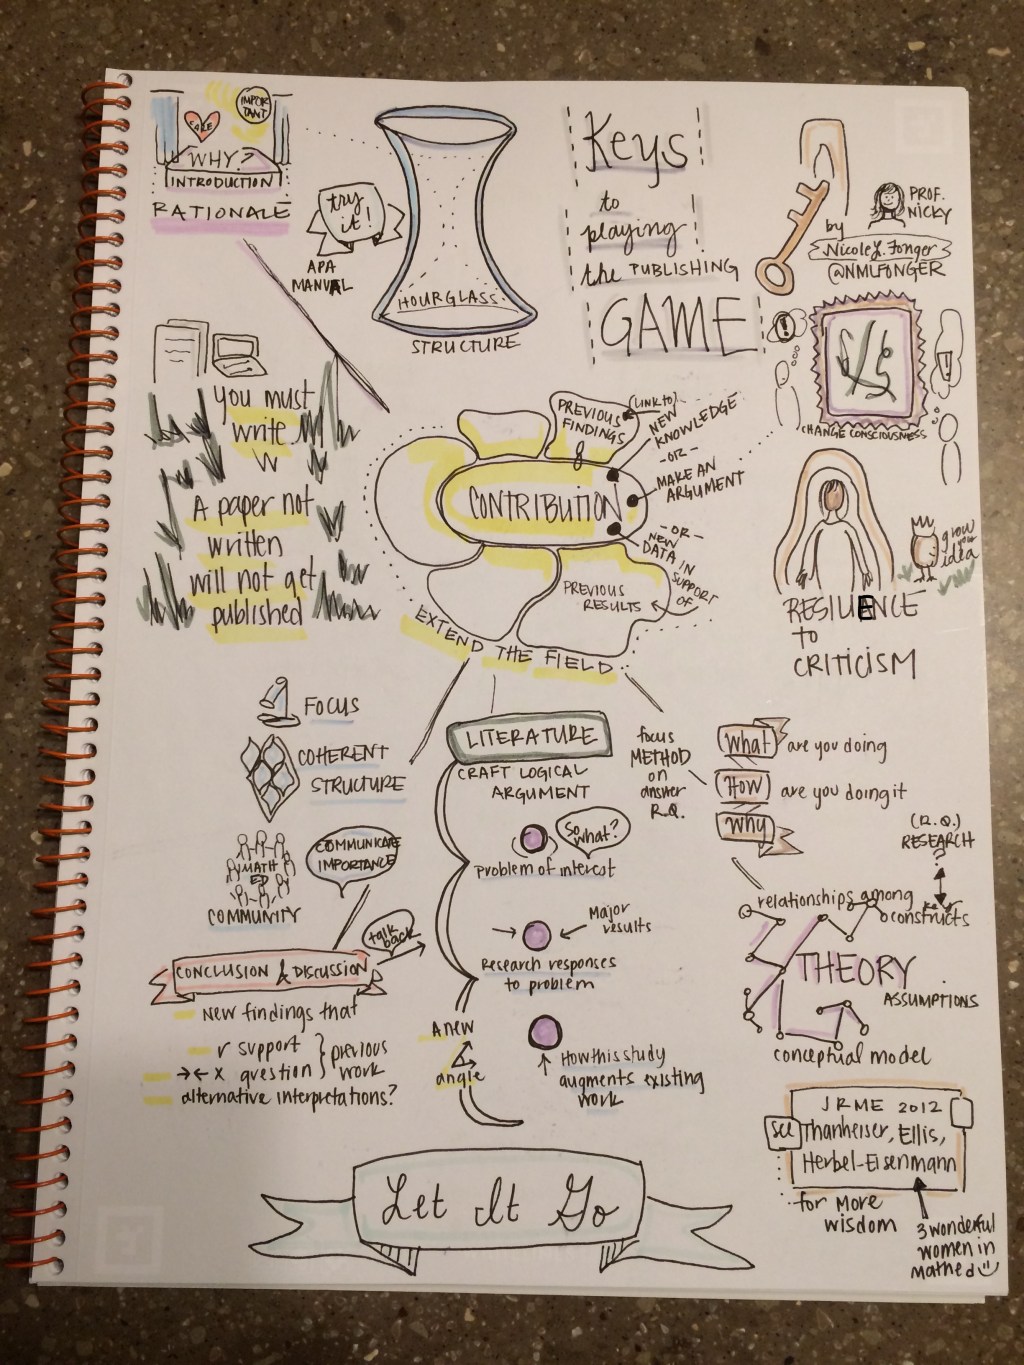 IMPORTANT
CARE
WHY?
INTRODUCTION
RATIONALE
try
it!
APA
MANUAL
HOURGLASS
STRUCTURE
Keys
to
playing
the PUBLISHING
GAME
by
PROF.
NICKY
Nicole L. Fonger
@NMLFONGER
!
!
CHANGE CONSCIOUSNESS
You must
write
A paper not
written
will not get
published
PREVIOUS
FINDINGS
&
CONTRIBUTION
(LINK TO)
NEW
KNOWLEDGE
-OR-
MAKE AN
ARGUMENT
-OR-
NEW
DATA IN
SUPPORT
OF
PREVIOUS
RESULTS
EXTEND THE FIELD
grow
your
idea
RESILIENCE
to
CRITICISM
FOCUS
COHERENT
STRUCTURE
MATH
ED
COMMUNITY
COMMUNICATE
IMPORTANCE
talk
back
CONCLUSION & DISCUSSION
New findings that
r support
→← x question
previous
work
alternative interpretations?
LITERATURE
CRAFT LOGICAL
ARGUMENT
So
what?
Problem of interest
Major
results
Research responses
to problem
A new
angle
How this study
augments existing
work
focus
METHOD
on
answer
R.Q.
What are you doing
How are you doing it
Why
(R.Q.)
RESEARCH
?
relationships among
key
constructs
THEORY
ASSUMPTIONS
conceptual model
JRME 2012
see Thanheiser, Ellis,
Herbel-Eisenmann
for more
wisdom
3 wonderful
women in
mathed
Let It Go